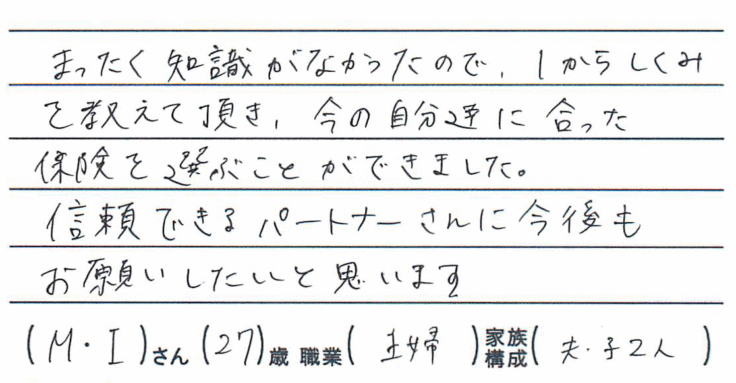 まったく知識がなかったので、1からしくみ
を教えて頂き、今の自分達に合った
保険を選ぶことができました。
信頼できるパートナーさんに今後も
お願いしたいと思います
(M・I)さん(27)歳 職業(主婦)家族構成(夫・子2人)